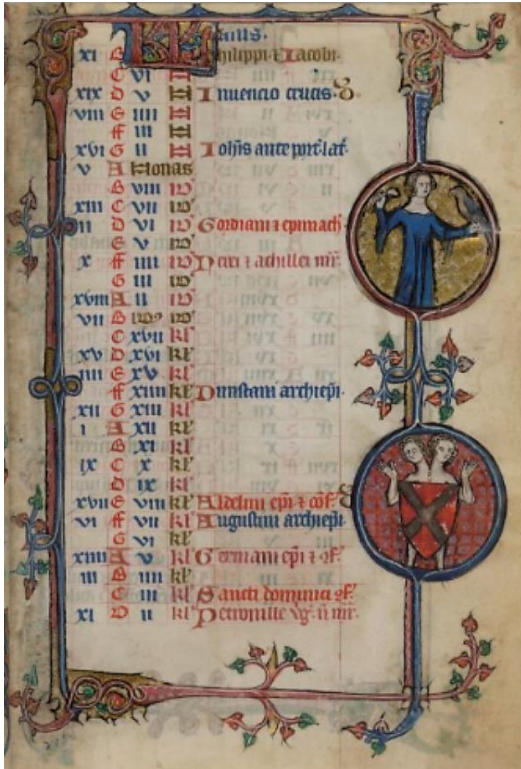 KL
xi B philippi ⁊ Iacobi.
C vi N
xix D v N Inuencio crucis.
viii E iiii N
ff iii N
xvi G ii N Iohis ante port̃ lat̃.
v A Nonas
B viii id
xiii C vii id
ii D vi id Gordiani ⁊ epimach
E v id
x ff iiii id Nerei ⁊ achillei mr̃.
G iii id
xviii A ii id
vii B id9
C xvii kl
xv D xvi kl
iiii E xv kl
ff xiiii kl Dunstani archiep̃i.
xii G xiii kl
i A xii kl
B xi kl
ix C x kl
D ix kl
xvii E viii kl Aldelmi ep̃i ⁊ cõf.
vi ff vii kl Augustini archiep̃i
G
xiiii A v kl Germani ep̃i ⁊ ɔf.
iii B iiii kl
C iii kl Sancti dominici ɔf.
xi D ii kl Petronille vg̃. ñ mr̃.